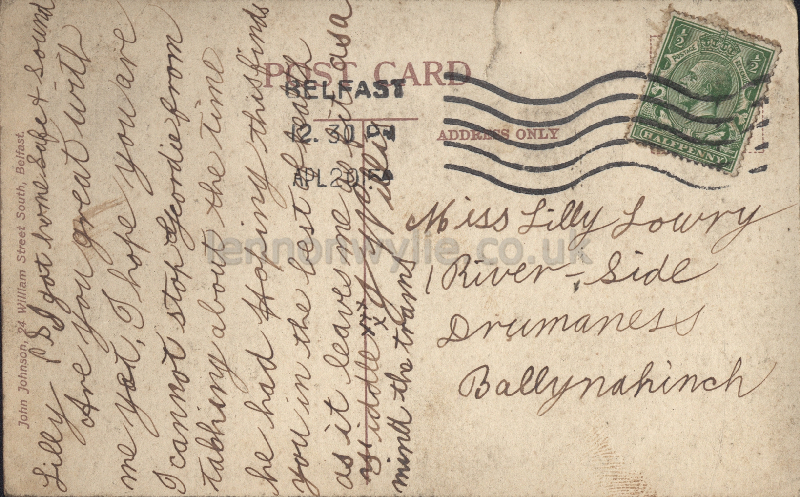 POST CARD
ADDRESS ONLY
BELFAST
12. 30 PM
AP 23
HALFPENNY
½ ½
John Johnson, 24 William Street South, Belfast.
Lilly PS I got home safe & Sound
Are you great with
me yet, I hope you are
I cannot stop Geordie from
talking about the time
he had Hoping this finds
you in the best of health
as it leaves me fit as a
fiddle xxx Willie
mind the trams
Miss Lilly Lowry
1 River-Side
Drumaness
Ballynahinch
lennonwylie.co.uk